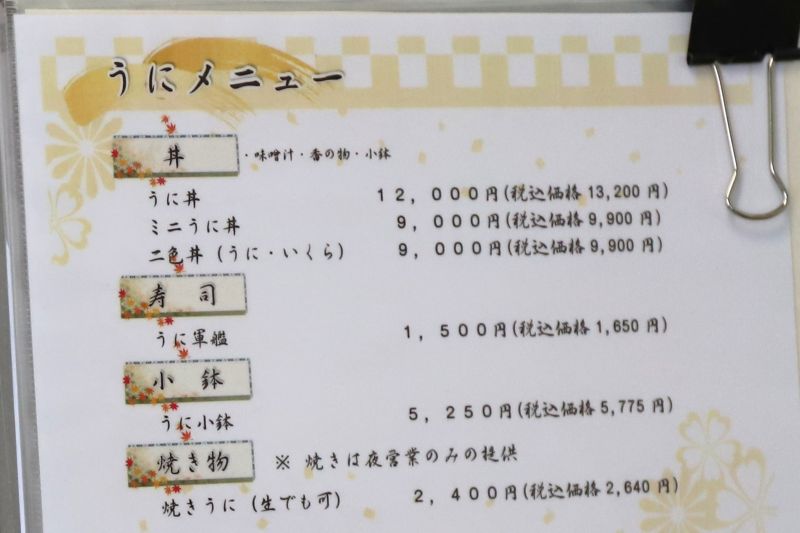 うにメニュー
丼 ・味噌汁・香の物・小鉢
うに丼 １２，０００円(税込価格 13,200 円)
ミニうに丼 ９，０００円(税込価格 9,900 円)
二色丼 (うに・いくら) ９，０００円(税込価格 9,900 円)
寿 司
うに軍艦 １，５００円(税込価格 1,650 円)
小 鉢
うに小鉢 ５，２５０円(税込価格 5,775 円)
焼き物 ※ 焼きは夜営業のみの提供
焼きうに (生でも可) ２，４００円(税込価格 2,640 円)